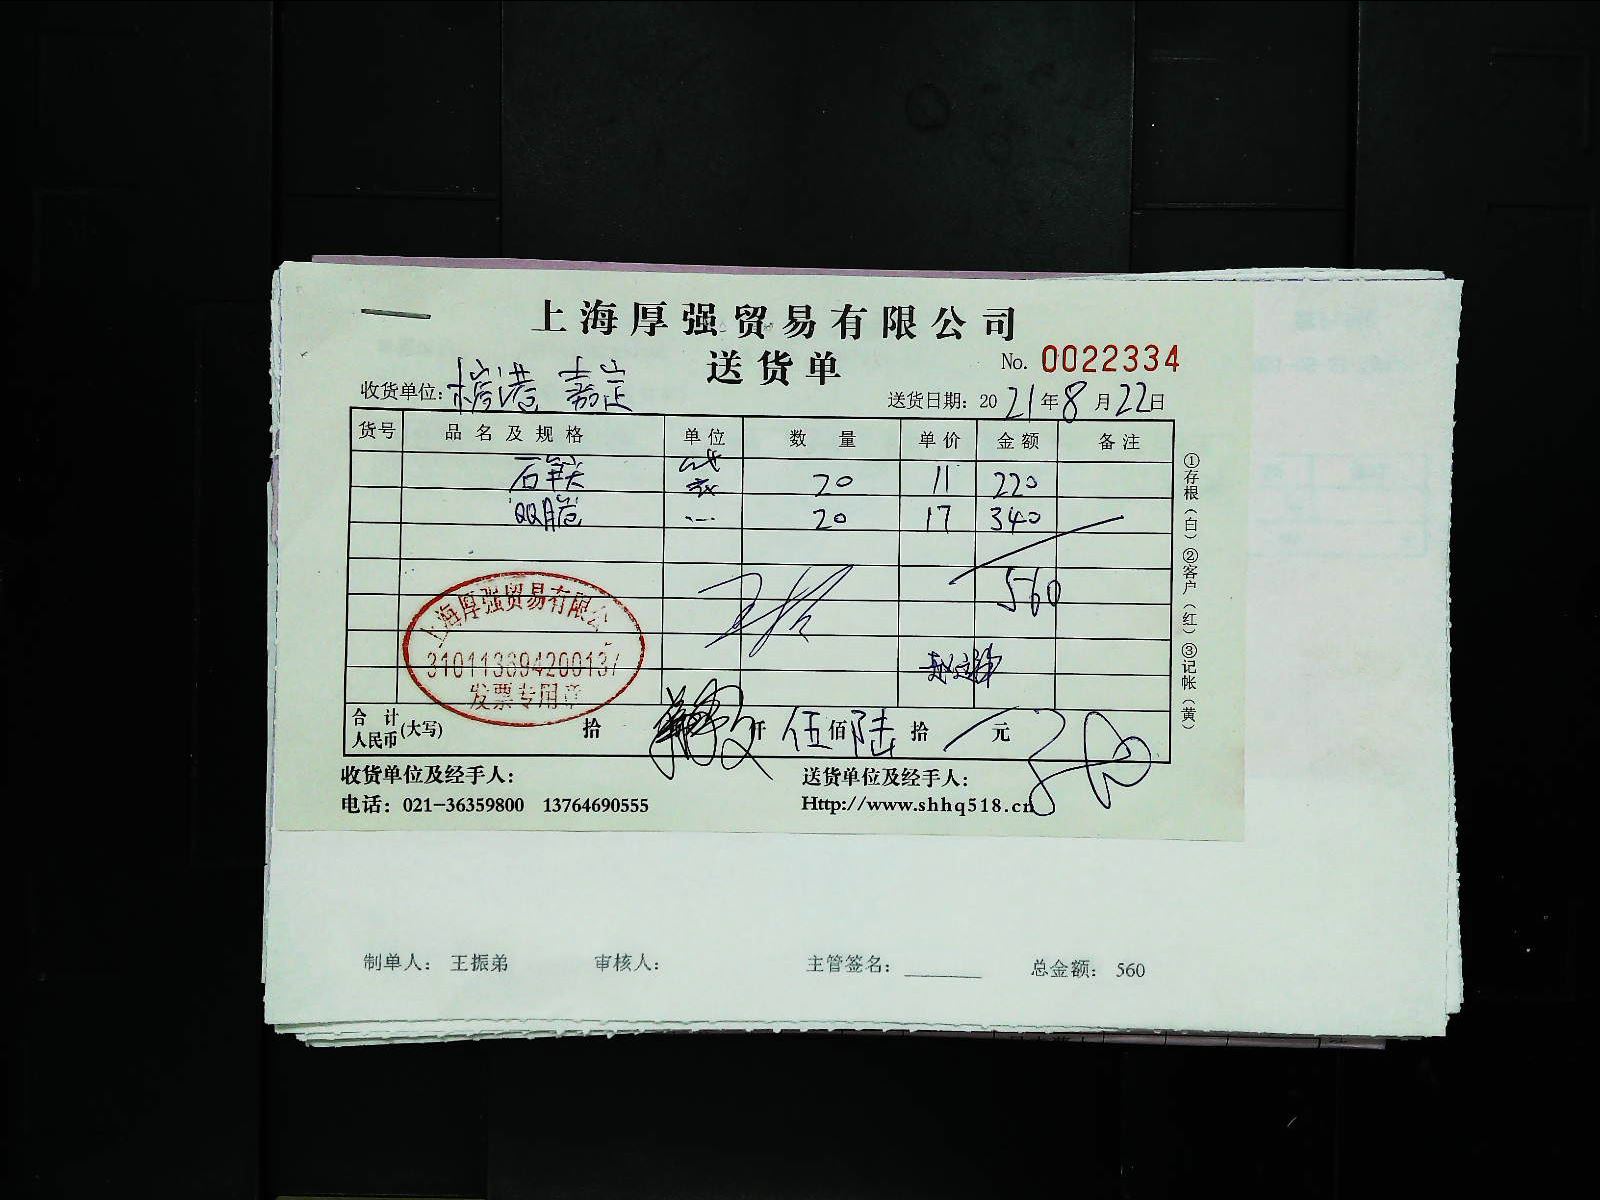 上海厚强贸易有限公司
送货单
No. 0022334
收货单位: 港 嘉定
送货日期: 2021年8月22日
货号 品名及规格 单位 数量 单价 金额 备注
20 11 220
20 17 340
560
上海厚强贸易有限公
发票专用章
合计人民币(大写) 拾 仟 伍佰陆拾 元
收货单位及经手人:
送货单位及经手人:
电话: 021-36359800 13764690555
Http://www.shhq518.cn
①存根(白)②客户(红)③记帐(黄)
制单人: 王振弟 审核人: 主管签名: ________ 总金额: 560